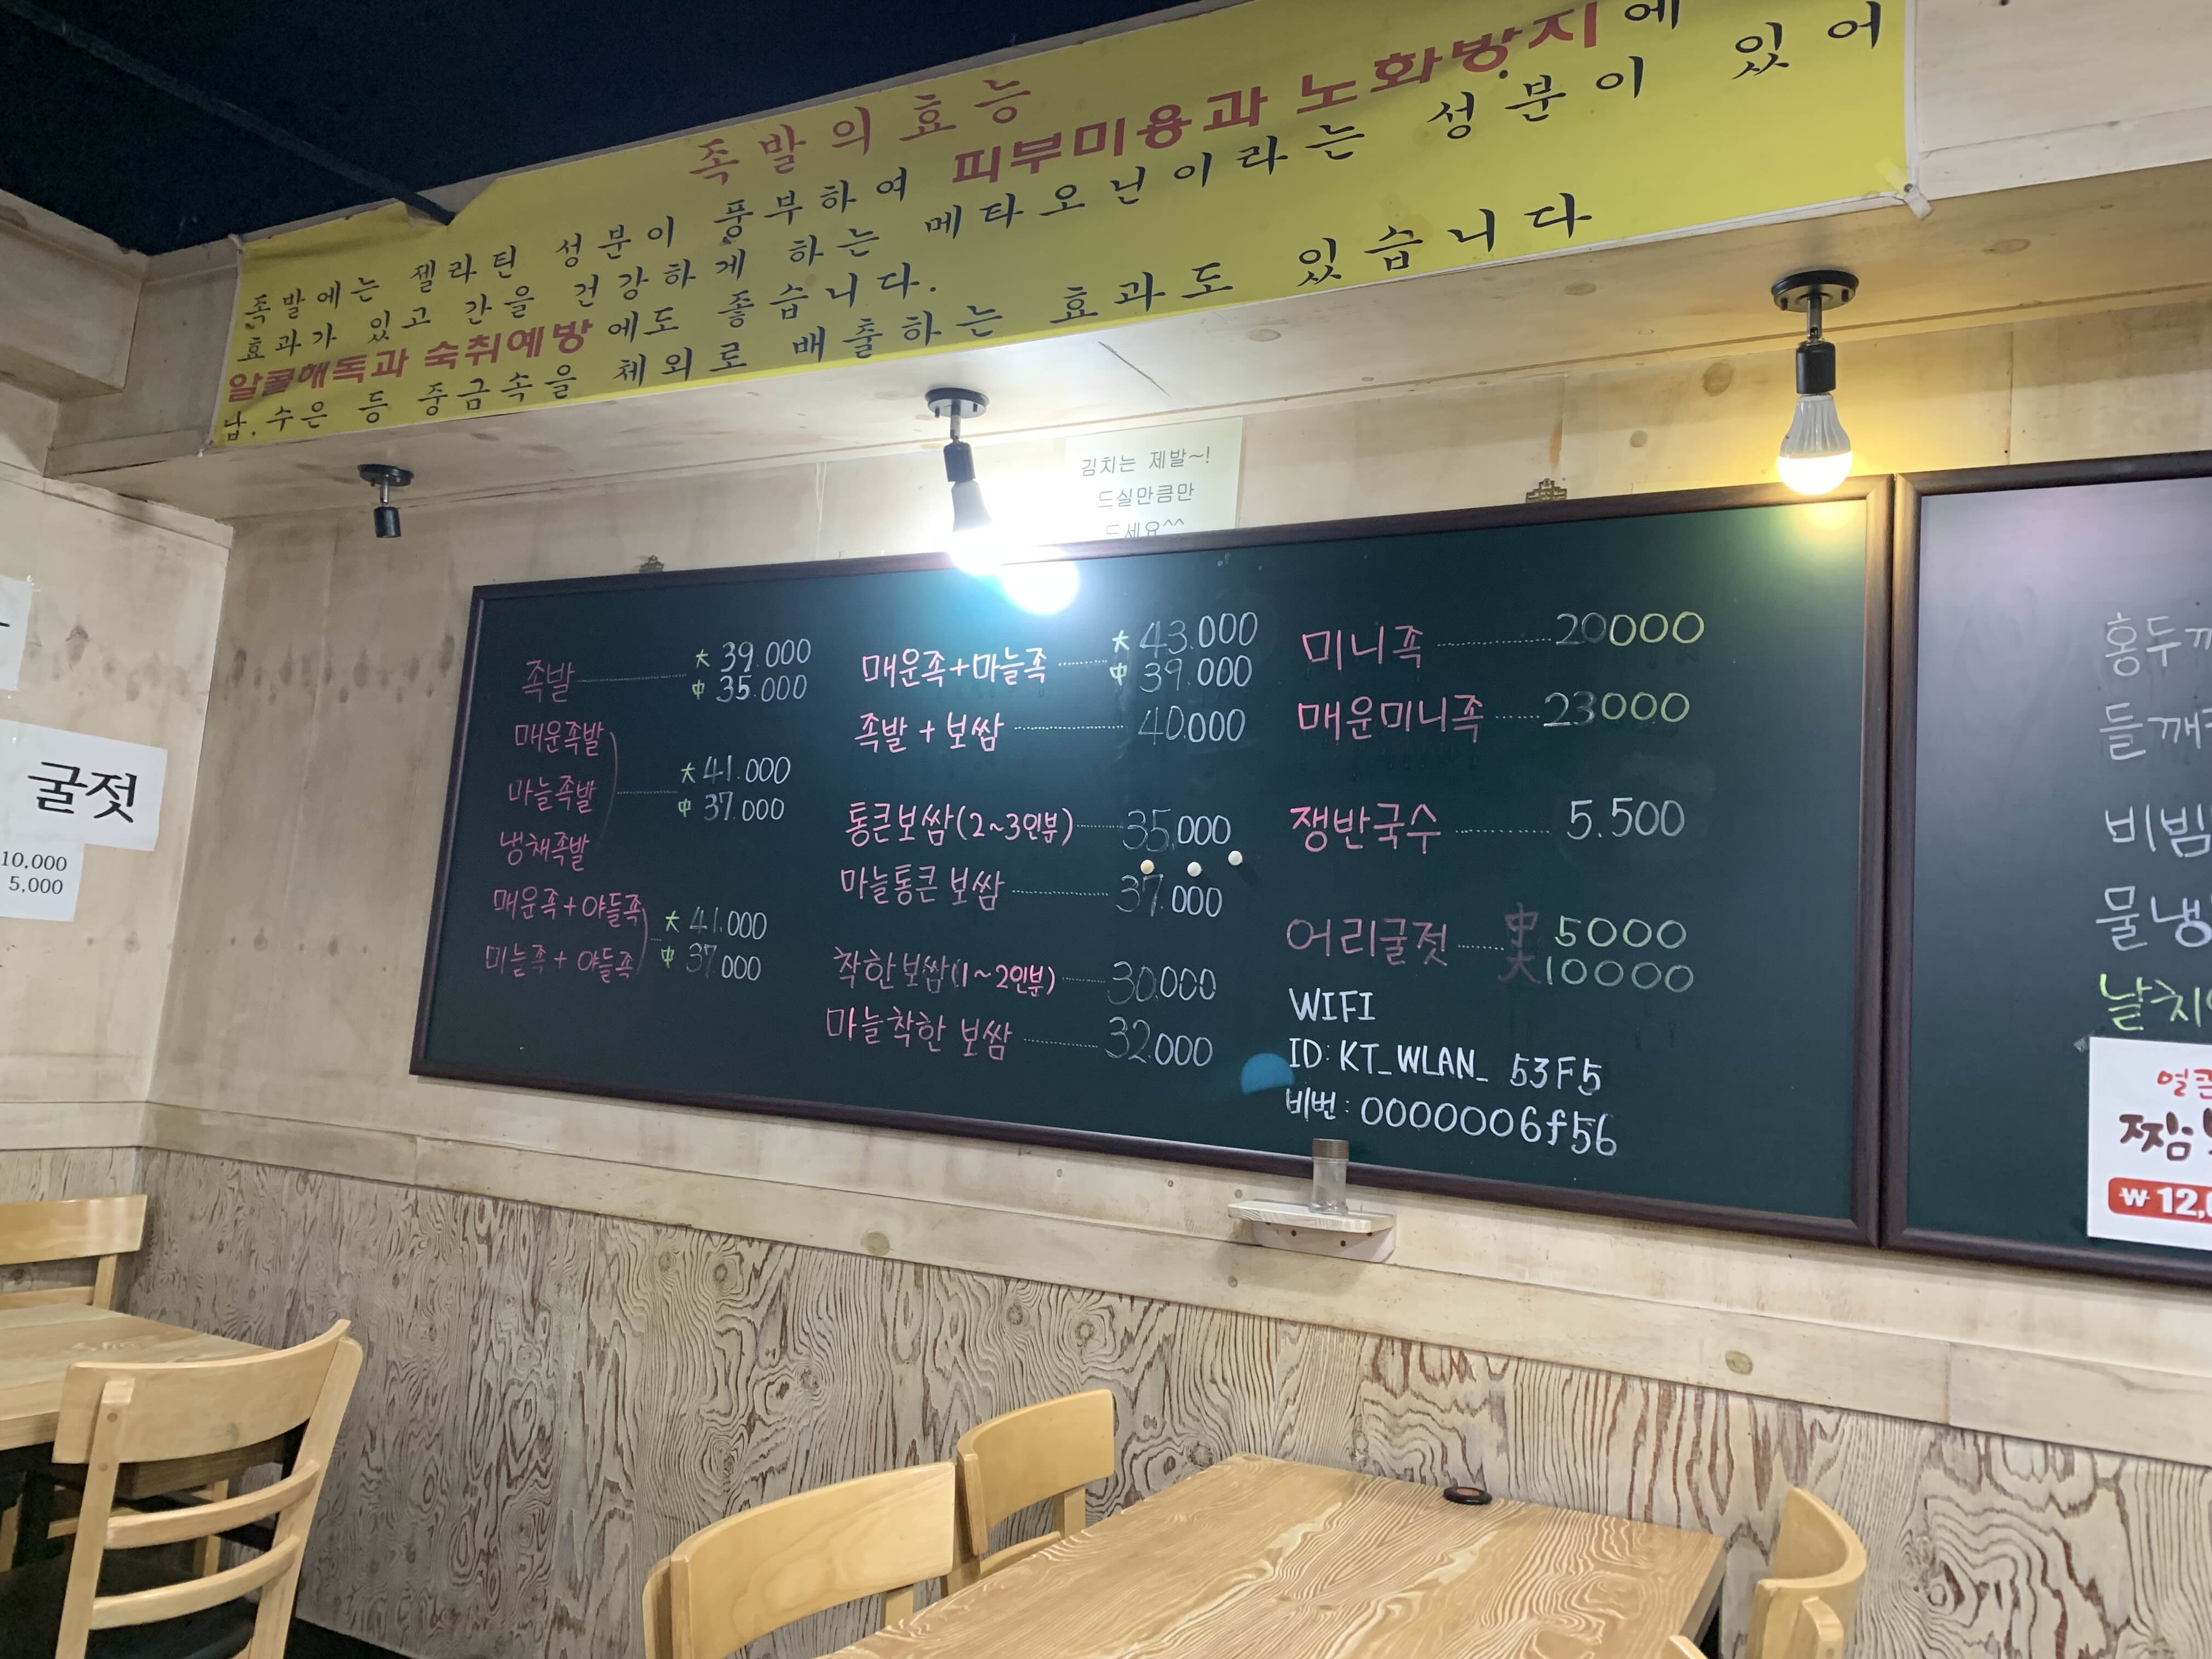 족발의효능
족발에는 젤라틴 성분이 풍부하여 피부미용과 노화방지에
효과가 있고 간을 건강하게 하는 메타오닌이라는 성분이 있어
알콜해독과 숙취예방에도 좋습니다.
납,수은 등 중금속을 체외로 배출하는 효과도 있습니다
김치는 제발~!
드실만큼만
드세요^^
굴젓
10,000
5,000
족발 大 39.000
中 35.000
매운족발
마늘족발 大 41.000
中 37.000
냉채족발
매운족+야들족 大 41.000
마늘족+야들족 中 37.000
매운족+마늘족 大 43.000
中 39.000
족발+보쌈 40.000
통큰보쌈(2~3인분) 35,000
마늘통큰보쌈 37.000
착한보쌈(1~2인분) 30.000
마늘착한 보쌈 32.000
미니족 20000
매운미니족 23000
쟁반국수 5.500
어리굴젓 中 5000
大 10000
WIFI
ID: KT_WLAN_ 53F5
비번: 0000006f56
홍두깨
들깨
비빔
물냉
날치
얼큰
짬
₩12,